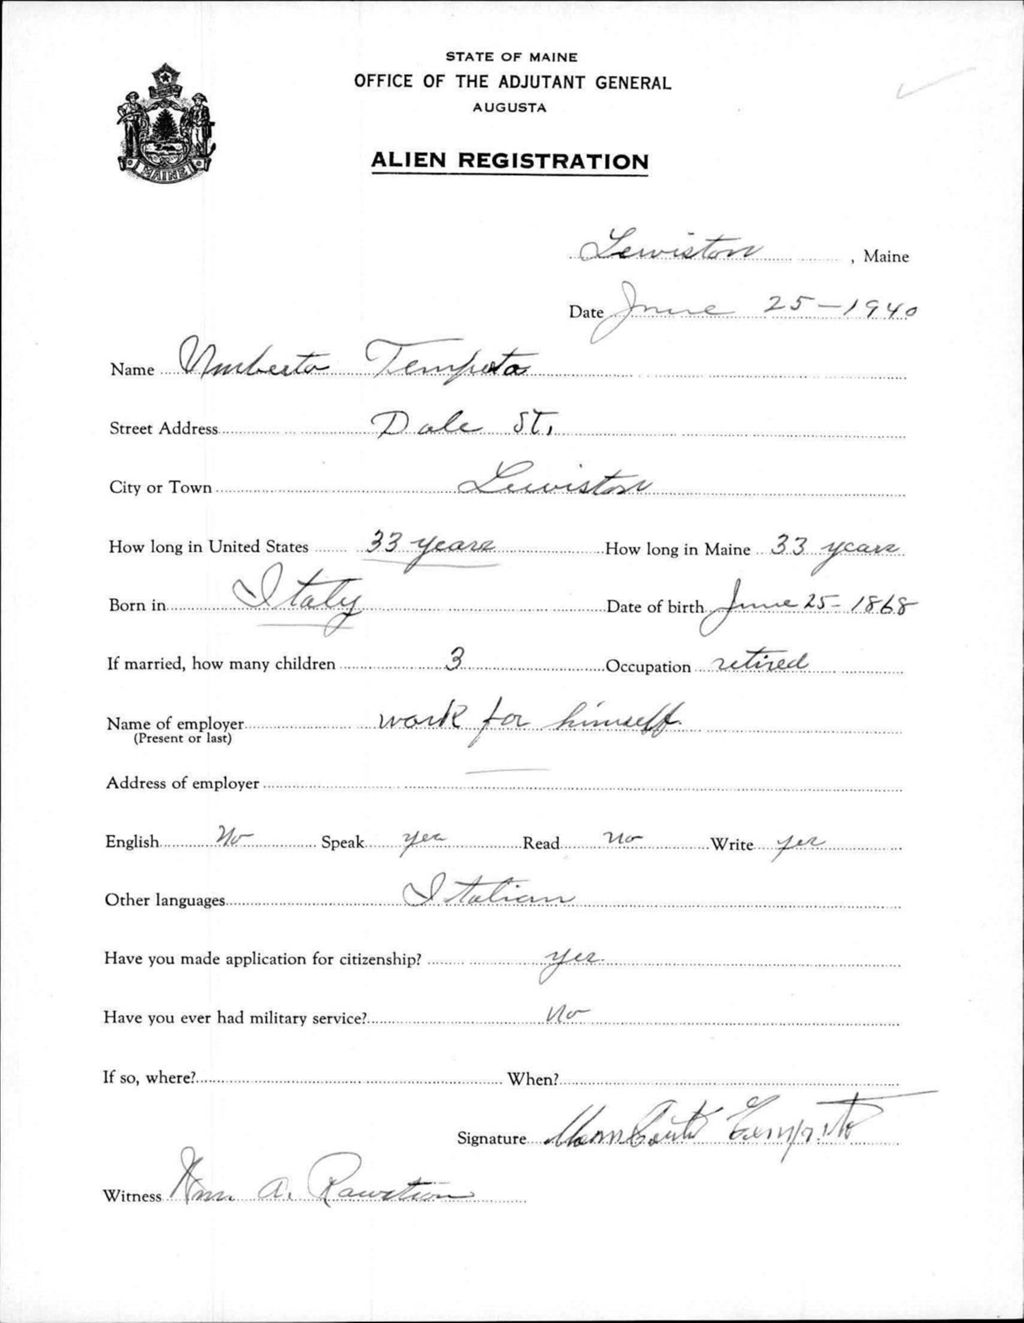 STATE OF MAINE
OFFICE OF THE ADJUTANT GENERAL
AUGUSTA
MAINE
ALIEN REGISTRATION
Lewiston, Maine
Date June 25-1940
Name Umberto Tempesta
Street Address Dale St,
City or Town Lewiston
How long in United States 33 years How long in Maine 33 years
Born in Italy Date of birth June 25-1868
If married, how many children 3 Occupation retired
Name of employer work for himself
(Present or last)
Address of employer —
English No Speak yes Read No Write yes
Other languages Italian
Have you made application for citizenship? yes
Have you ever had military service? No
If so, where? When?
Signature
Witness Wm. A.